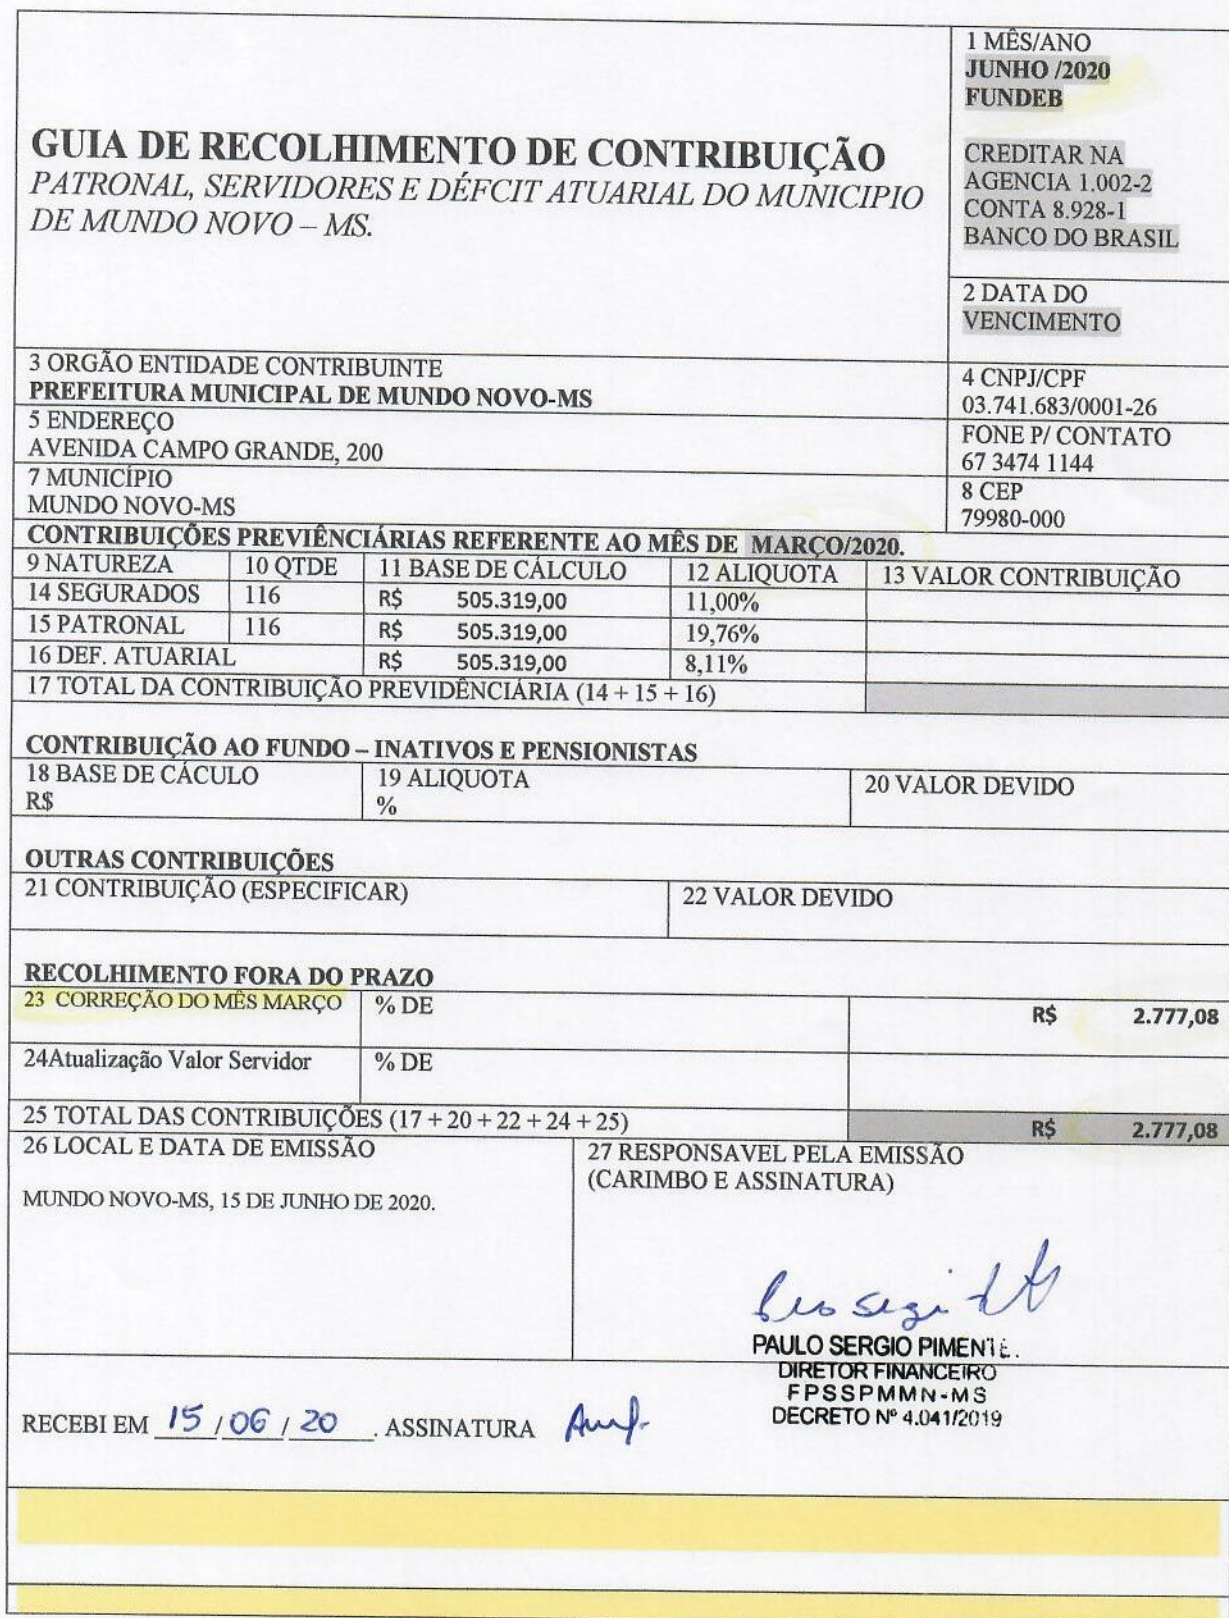 1 MÊS/ANO
JUNHO /2020
FUNDEB
CREDITAR NA
AGENCIA 1.002-2
CONTA 8.928-1
BANCO DO BRASIL
GUIA DE RECOLHIMENTO DE CONTRIBUIÇÃO
PATRONAL, SERVIDORES E DÉFCIT ATUARIAL DO MUNICIPIO
DE MUNDO NOVO – MS.
2 DATA DO
VENCIMENTO
3 ORGÃO ENTIDADE CONTRIBUINTE
PREFEITURA MUNICIPAL DE MUNDO NOVO-MS
4 CNPJ/CPF
03.741.683/0001-26
5 ENDEREÇO
AVENIDA CAMPO GRANDE, 200
FONE P/ CONTATO
67 3474 1144
7 MUNICÍPIO
MUNDO NOVO-MS
8 CEP
79980-000
CONTRIBUIÇÕES PREVIÊNCIÁRIAS REFERENTE AO MÊS DE MARÇO/2020.
9 NATUREZA 10 QTDE 11 BASE DE CÁLCULO 12 ALIQUOTA 13 VALOR CONTRIBUIÇÃO
14 SEGURADOS 116 R$ 505.319,00 11,00%
15 PATRONAL 116 R$ 505.319,00 19,76%
16 DEF. ATUARIAL R$ 505.319,00 8,11%
17 TOTAL DA CONTRIBUIÇÃO PREVIDÊNCIÁRIA (14 + 15 + 16)
CONTRIBUIÇÃO AO FUNDO – INATIVOS E PENSIONISTAS
18 BASE DE CÁCULO 19 ALIQUOTA 20 VALOR DEVIDO
R$ %
OUTRAS CONTRIBUIÇÕES
21 CONTRIBUIÇÃO (ESPECIFICAR) 22 VALOR DEVIDO
RECOLHIMENTO FORA DO PRAZO
23 CORREÇÃO DO MÊS MARÇO % DE R$ 2.777,08
24Atualização Valor Servidor % DE
25 TOTAL DAS CONTRIBUIÇÕES (17 + 20 + 22 + 24 + 25) R$ 2.777,08
26 LOCAL E DATA DE EMISSÃO
MUNDO NOVO-MS, 15 DE JUNHO DE 2020.
27 RESPONSAVEL PELA EMISSÃO
(CARIMBO E ASSINATURA)
PAULO SERGIO
DIRETOR FINANCEIRO
FPSSPMMN-MS
DECRETO Nº 4.041/2019
RECEBI EM 15 / 06 / 20 . ASSINATURA